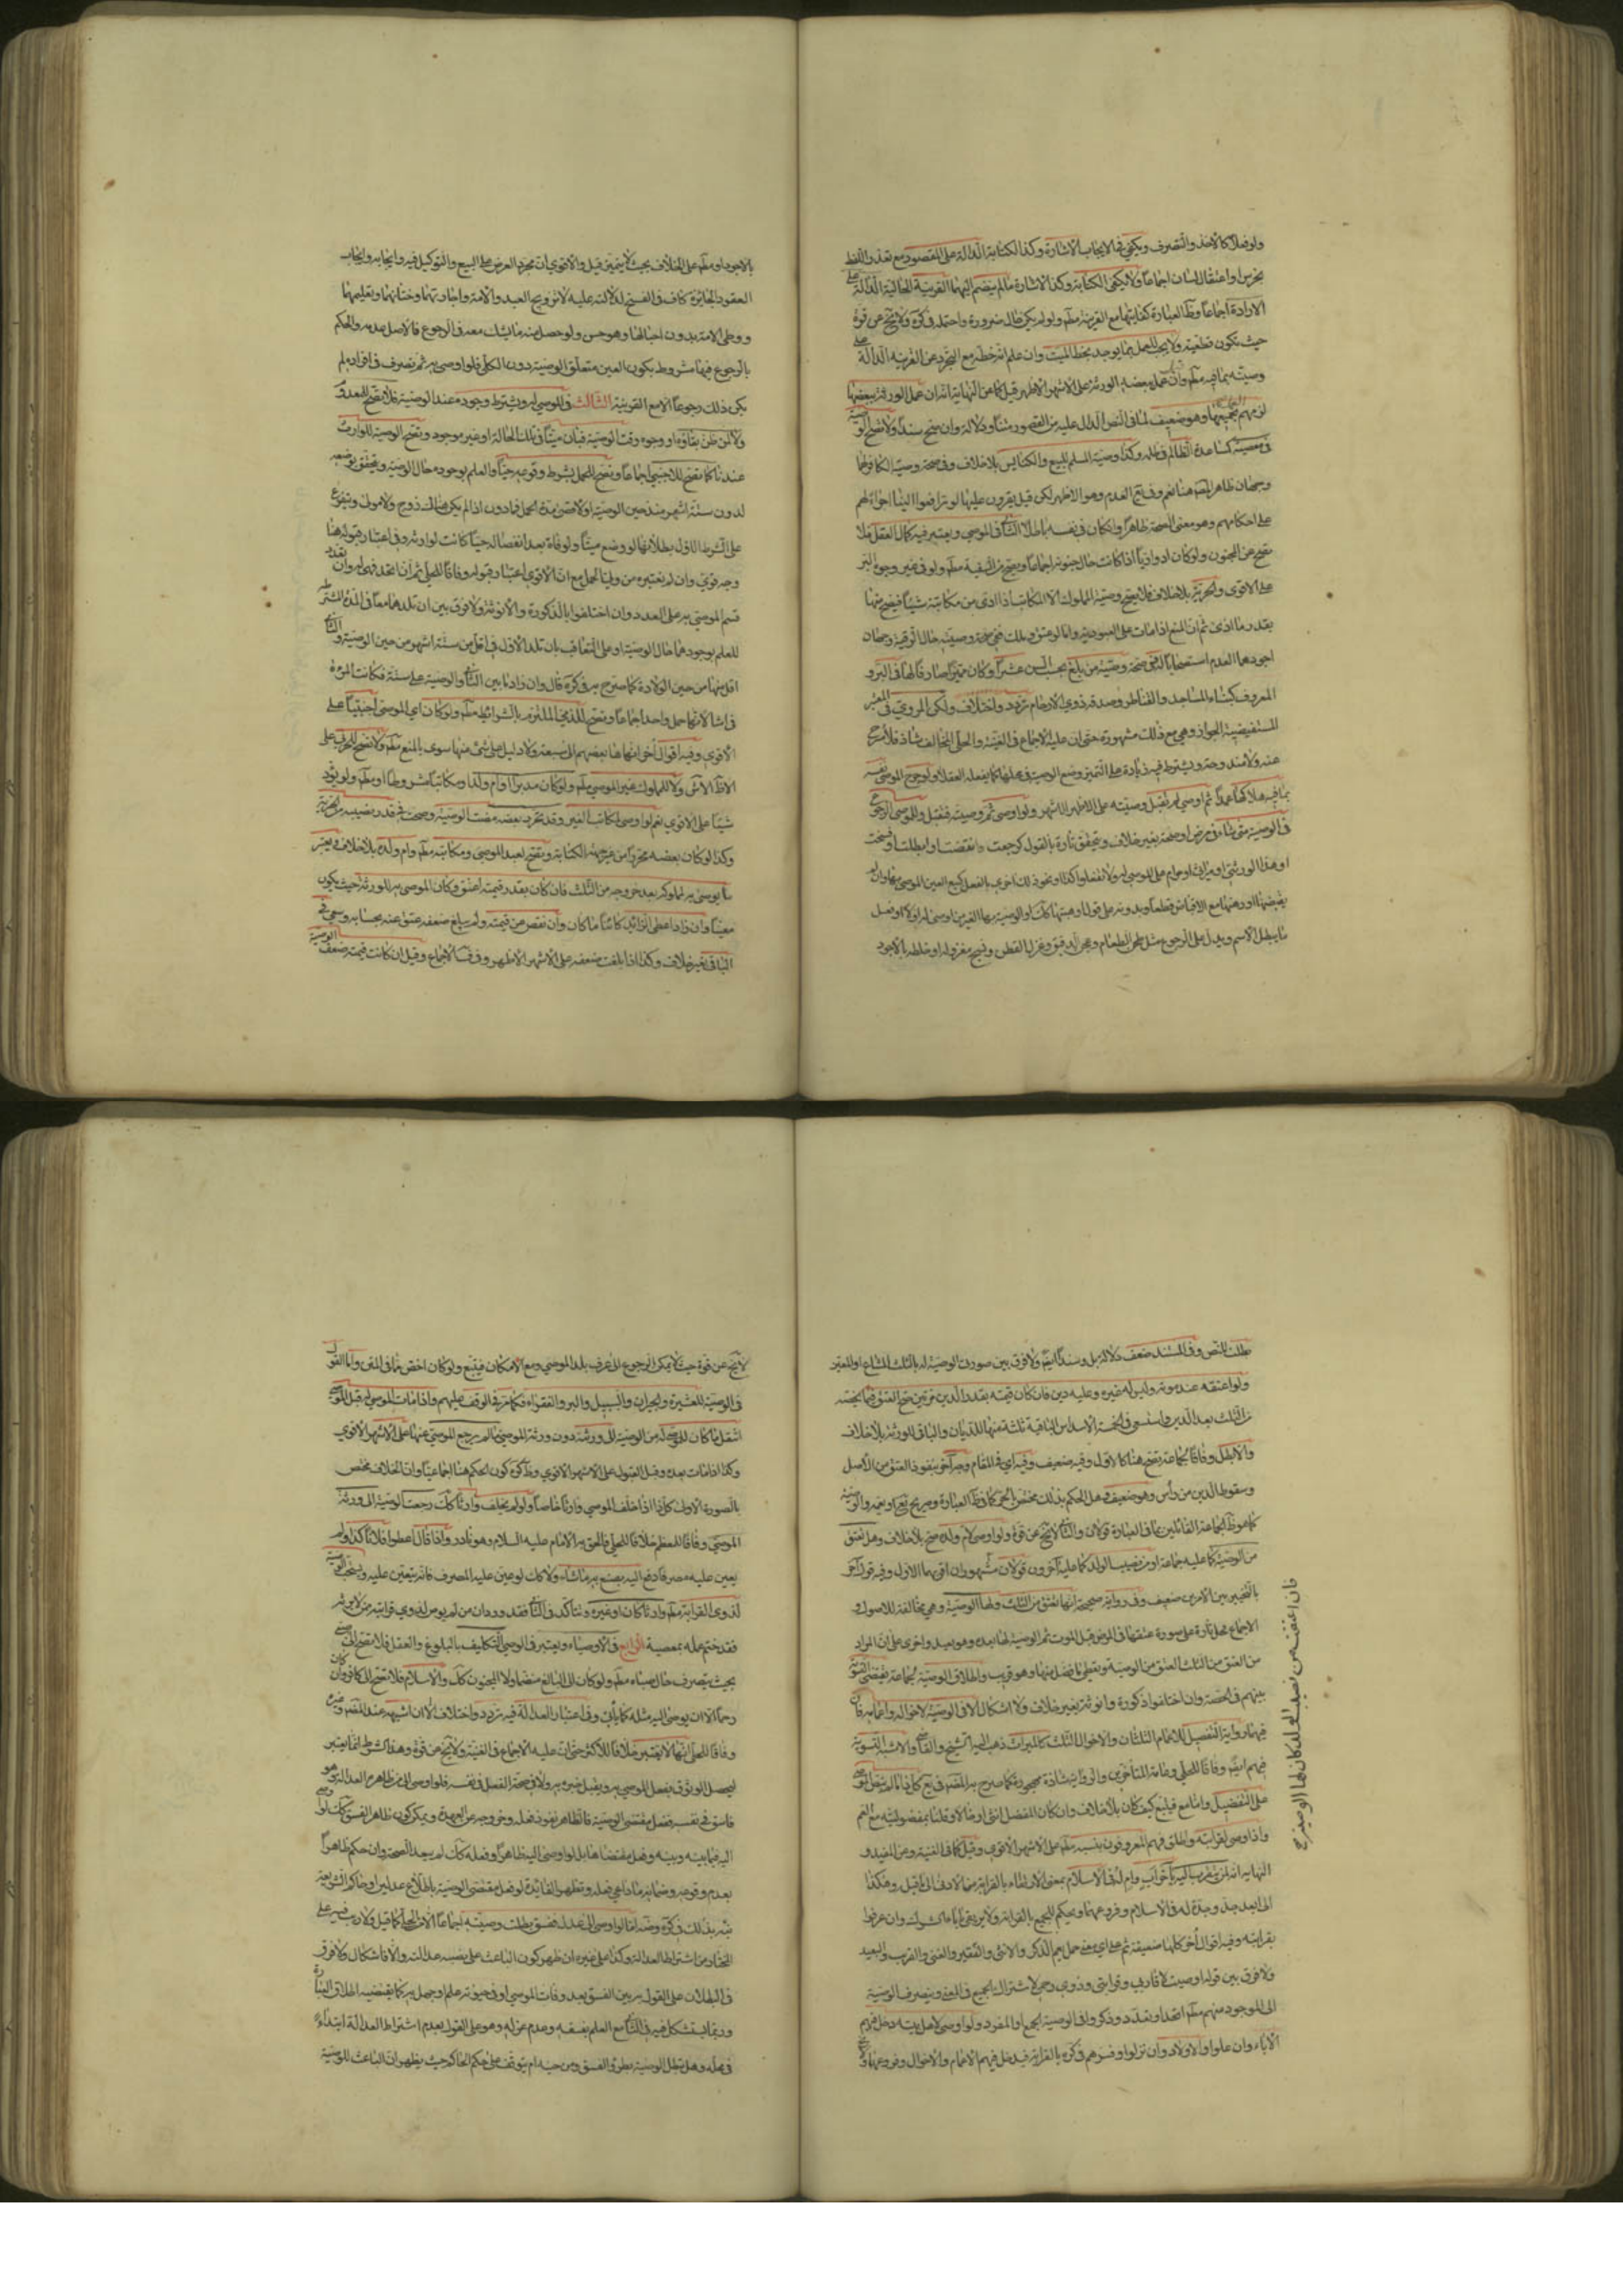 ولو فعلا كالاخذ والتصرف ويكفي في الايجاب الاشارة وكذا الكتابة الدالة على المقصود مع تعذر اللفظ
بخرس او اعتقال لسان اجماعا ولا يكفي الكتابة وكذا الاشارة ما لم ينضم اليهما القرينة الحالية الدالة على
الارادة اجماعا وظ العبارة كفايتها مع القرينة مطم ولو لم يكن حال ضرورة واحتمله في كره ولا يخ عن قوة
حيث تكون قطعية ولا يجب العمل بما يوجد بخط الميت وان علم انه خطه مع التجرد عن القرينة الدالة على
وصيته بما فيه مطم وان عمل بعضه الورثة على الاشهر الاظهر قيل كما عن النهاية انه ان عمل الورثة ببعضها
لزمهم بجميعها وهو ضعيف لما في النص الدال عليه من القصور متنا ودلالة وان صح سندا ولا تصح الوصية
في معصية كمساعدة الظالم في ظلمه وكذا وصية المسلم للبيع والكنايس بلا خلاف وفي صحة وصية الكافر لها
وجهان ظاهر المقم هنا نعم وفي يع العدم وهو الاظهر لكن قيل يقرون عليها لو ترافعوا الينا اجراء لهم
على احكامهم وهو معنى الصحة ظاهرا وان كان في نفسه باطلا الثاني في الموصي ويعتبر فيه كمال العقل فلا
تصح عن المجنون ولو كان ادواريا اذا كانت حال جنونه اجماعا ويصح من السفيه مطم ولو في غير وجوه البر
على الاقوى والحرية بلا خلاف فلا يصح وصية المملوك الا المكاتب اذا ادى من مكاتبته شيئا فيصح منها
بقدر ما ادى ثم ان المنع اذا مات على العبودية واما لو عتق وملك ففي صحة وصيته حال الرقية وجهان
اجودهما العدم استصحابا للحق صحة وصية من بلغ بحسب السن عشرا وكان مميزا صارفا لها في البر و
المعروف كبناء المساجد والقناطر وصدقة ذوي الارحام تردد واختلاف ولكن المروي في المعتبر
المستفيضة الجواز وهي مع ذلك مشهورة حتى ان عليه الاجماع في الغنية والحلي المخالف شاذ فلا مرجح
عنه ولا مندوحة ويشترط فيه زيادة على التميز وضع الوصية في محلها كما يفعله العقلاء ولو جرح الموصي نفسه
بما فيه هلاكها عمدا ثم اوصى لم تقبل وصيته على الاظهر الاشهر ولو اوصى ثم وصيته فتقبل وللموصي الرجوع
في الوصية متى شاء في مرض او صحة بغير خلاف ويتحقق تارة بالقول كرجعت وانقضت او ابطلت او فسخت
او هذا لورثتي او ميراثي او حرام على الموصى له او لا تفعلوا كذا او نحو ذلك اخرى بالفعل كبيع العين الموصى بها وان لم
يقبضها او رهنها مع الاقباض قطعا وبدونه على قول او هبتها كك او الوصية بها الغير من اوصى له اولا او فعل
ما يبطل الاسم ويدل على الرجوع مثل طحن الطعام وعجن الدقيق وغزل القطن ونسج مغزوله او خلطه بالاجود
بالاجود او مطم على الخلاف بحيث لا يتميز قيل والاقوى ان مجرد العرض على البيع والتوكيل فيه وايجابه وايجاب
العقود الجائزة كاف في الفسخ لدلالته عليه لا تزويج العبد والامة واجارتهما وختانهما وتعليمهما
ووطي الامة بدون احبالها وهو حسن ولو حصل منه ما يشك معه في الرجوع فالاصل عدمه والحكم
بالرجوع فيها مشروط بكون العين متعلق الوصية دون الكلي فلو اوصى به ثم تصرف في افراده لم
يكن ذلك رجوعا الا مع القرينة الثالث في الموصى له ويشترط وجوده عند الوصية فلا تصح للمعدوم
ولا لمن ظن بقاؤه او وجوده وقت الوصية فبان ميتا في تلك الحالة او غير موجود وتصح الوصية للوارث
عندنا كما تصح للاجنبي اجماعا وتصح للحمل بشرط وقوعه حيا والعلم بوجوده حال الوصية ويتحقق بوضعه
لدون ستة اشهر منذ حين الوصية او لاقصى مدة الحمل فما دون اذا لم يكن هناك زوج ولا مولى ويتفرع
على الشرط الاول بطلانها لو وضع ميتا ولو فات بعد انفصاله حيا كانت لوارثه وفي اعتبار قبوله هنا
وجه قوي وان لم نعتبره من ولينا الحمل مع ان الاقوى اعتبار قبوله وفاقا للحلي ثم ان اتحد فهي له وان تعدد
قسم الموصى به على العدد وان اختلفوا بالذكورة والانوثة ولا فرق بين ان تلدهما معا في المدة المشترطة
للعلم بوجودهما حال الوصية او على التعاقب بان تلد الاول في اقل من ستة اشهر من حين الوصية والثاني
اقل منها من حين الولادة كما صرح به في كره قال وان زاد ما بين الثاني والوصية على ستة فكانت المرءة
فراشا لانهما حمل واحد اجماعا وتصح للذمي الملتزم بالشرائط مطم ولو كان اي الموصى اجنبيا على
الاقوى وفيه اقوال اخر انهاها بعضهم الى سبعة ولا دليل على شئ منها سوى المنع مطم ولا تصح للحربي على
الاظهر الاشهر ولا للمملوك غير الموصي مطم ولو كان مدبرا او ام ولد او مكاتبا مشروطا او مطم ولو لم يؤد
شيئا على الاقوى نعم لو اوصى لمكاتب الغير وقد تحرر بعضه مضت الوصية وصحت في قدر نصيبه من الحرية
وكذا لو كان بعضه محررا من غير جهة الكتابة وتصح لعبد الموصي ومكاتبه مطم وام ولده بلا خلاف ويعتبر
ما يوصى به لمملوكه بعد خروجه من الثلث فان كان بقدر قيمته اعتق وكان الموصى به للورثة حيث يكون
معينا وان زاد اعطي الزائد كائنا ما كان وان نقص عن قيمته ولم يبلغ ضعفه عتق عنه بحسابه وسعى في
الباقي بغير خلاف وكذا اذا بلغت ضعفه على الاشهر الاظهر وفي ف الاجماع وقيل ان كانت قيمته ضعف الوصية
بطلت للنص وفي المستند ضعف دلالة بل وسندا ايضا ولا فرق بين صورتي الوصية له بالثلث المشاع او المعين
ولو اعتقه عند موته وليس له غيره وعليه دين فان كان قيمته بقدر الدين مرتين صح العتق فيما يخصه
من الثلث بعد الدين واستسعى في الخمسة الاسداس الباقية ثلثة منها للديان والباقي للورثة بلا خلاف
والا بطل وفاقا لجماعة تصح هنا كالاول وفيه ضعيف وفيه اي في المقام وجه آخر بنفوذ العتق من الاصل
وسقوط الدين من رأس وهو ضعيف وهل الحكم بذلك مختص بالمنجز كما في ظ العبارة وصريح يع او يعمه والوصية
كما هو ظ الجماعة القائلين بما في العبارة قولان والثاني لا يخ عن قوة ولو اوصى لام ولده صح بلا خلاف وهل تعتق
من الوصية كما عليه جماعة او من نصيب الولد كما عليه آخرون قولان مشهوران اقربهما الاول وفيه قول آخر
بالتخيير بين الامرين ضعيف وفي رواية صحيحة انها تعتق من الثلث ولها الوصية وهي مخالفة للاصول و
الاجماع محل تارة على صورة عتقها في المرض قبل الموت ثم الوصية لها بعده وهو بعيد واخرى على ان المراد
من العتق من الثلث العتق من الوصية وتعطي ما فضل منها وهو قريب واطلاق الوصية لجماعة يقتضي التسوية
بينهم في الحصة وان اختلفوا ذكورة وانوثة بغير خلاف ولا اشكال الا في الوصية لاخواله واعمامه فان
فيها رواية التفضيل للاعمام الثلثان والاخوال الثلث كالميراث ذهب اليه الشيخ والقاضي والاشبه التسوية
فيهم ايضا وفاقا للحلي وعامة المتأخرين والرواية شاذة مهجورة كما صرح به المقم في يع كل ذا ما لم ينص الموصي
على التفضيل واما مع فيتبع كيف كان بلا خلاف وان كان المفضل انثى او خالا وقلنا بمفضوليته مع العم
واذا اوصى لقرابته واطلق فهم المعروفون بنسبه مطم على الاشهر الاقوى وقيل كما في الغنية وعن المفيد و
النهاية انه لمن يتقرب اليه بآخر اب وام له في الاسلام بمعنى الارتقاء بالقرابة من الادنى الى ما قبل وهكذا
الى ابعد جد وجدة له في الاسلام وفروعهما ويحكم للجميع بالقرابة ولا يرتقي الى اباء الشرك وان عرفوا
بقرابته وفيه اقوال اخر كلها ضعيفة ثم على اي معنى حمل يعم الذكر والانثى والفقير والغني والقريب والبعيد
ولا فرق بين قوله اوصيت لاقاربي وقرابتي وذوي رحمي لاشتراك الجميع في المعنى وينصرف الوصية
الى الموجود منهم مطم اتحد او تعدد وذكروا في الوصية الجمع او المفرد ولو اوصى لاهل بيته دخل فيهم
الاباء وان علوا والاولاد وان نزلوا وفسرهم في كره بالقرابة فيدخل فيهم الاعمام والاخوال وفروعهما ولا
فان اعتقت من نصيب الولد كان لها الوصية صح
لا يخ عن قوة حيث لا يمكن الرجوع الى عرف بلد الموصي ومع الامكان فيتبع ولو كان اخص مما في المتن واما القول
في الوصية للعشيرة والجيران والسبيل والبر والفقراء فكما مر في الوقف عليهم واذا مات الموصى له قبل الموصي
انتقل ما كان للموصى له من الوصية الى ورثته دون ورثة الموصي ما لم يرجع الموصي عنها على الاشهر الاقوى
وكذا اذا مات بعده وقبل القبول على الاشهر الاقوى وظ كره كون الحكم هنا اجماعيا وان الخلاف مختص
بالصورة الاولى كل ذا اذا خلف الموصى وارثا خاصا ولو لم يخلف وارثا كك رجعت الوصية الى ورثة
الموصي وفاقا للمعظم خلافا للحلي فالحق به الامام عليه السلام وهو نادر واذا قال اعطوا فلانا كذا ولم
يعين عليه مصرفا دفع اليه يصنع به ما شاء ولا كك لو عين عليه المصرف فانه يتعين عليه ويستحب الوصية
لذوي القرابة مطم وارثا كان او غيره ويتأكد في الثاني فقد ورد ان من لم يوص لذوي قرابته ممن لا يرثه
فقد ختم عمله بمعصية الرابع في الاوصياء ويعتبر في الوصي التكليف بالبلوغ والعقل فلا تصح الى صبي
بحيث يتصرف حال صباه مطم ولو كان الى البالغ منضما ولا المجنون كك والاسلام فلا تصح الى كافر وان كان
رحما الا ان يوصى اليه مثله كما يأتي وفي اعتبار العدالة فيه تردد واختلاف الا ان اشبهه عند المقم وغيره
وفاقا للحلي انها لا تعتبر خلافا للاكثر حتى ان عليه الاجماع في الغنية ولا يخ عن قوة وهذا الشرط انما يعتبر
ليحصل الوثوق بفعل الموصى به ويقبل خبره به ولا في صحة الفعل في نفسه فلو اوصى الى من ظاهره العدالة وهو
فاسق في نفسه ففعل مقتضى الوصية فالظاهر نفوذ فعله وخروجه عن العهدة ويمكن كون ظاهر الفسق كك لو اوصى
اليه فيما بينه وبينه وفعل مقتضاها بل لو اوصى اليه ظاهرا وفعله كك لم يبعد الصحة وان حكم ظاهرا
بعدم وقوعه وضمانه ما ادعى فعله وتظهر الفائدة لو فعل مقتضى الوصية باطلاع عدلين او حاكم الشريعة
نبه بذلك في كره وضه اما لو اوصى الى عدل ففسق بطلت وصيته اجماعا الا من الحلي كما قيل ولا ريب فيه على
المختار من اشتراط العدالة وكذا على غيره ان ظهر كون الباعث على نفسه عدالته والا فاشكال ولا فرق
في البطلان على القول به بين الفسق بعد وفات الموصي او في حيوته علم او جهل به كما يقتضيه اطلاق العبارة
وربما يستشكل فيه في الثاني مع العلم بفسقه وعدم عزله وهو على القول بعدم اشتراط العدالة ابتداء
في محله وهل تبطل الوصية بطرو الفسق ومن حينه ام يتوقف على حكم الحاكم حيث يظهر ان الباعث للوصية